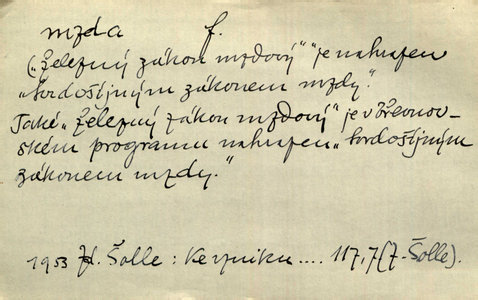 mzda f.
(„Železný zákon mzdový“ je nahrazen
„ukrutným zákonem mzdy.“
Také „železný zákon mzdový“ je v březnov-
ském programu nahrazen
zákonem mzdy.“
1953 Zd. Šolle: K vzniku .... 117, 7 (Z. Šolle).